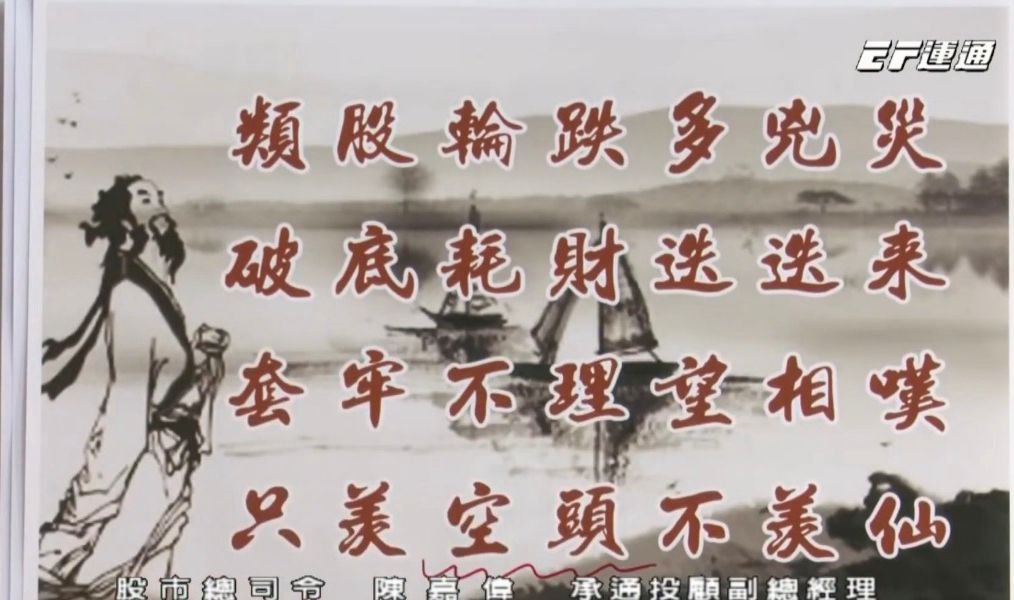 運通
類股輪跌多兇災
破底耗財迭迭来
套牢不理望相嘆
只羨空頭不羨仙
股市總司令 陳嘉偉 承通投顧副總經理